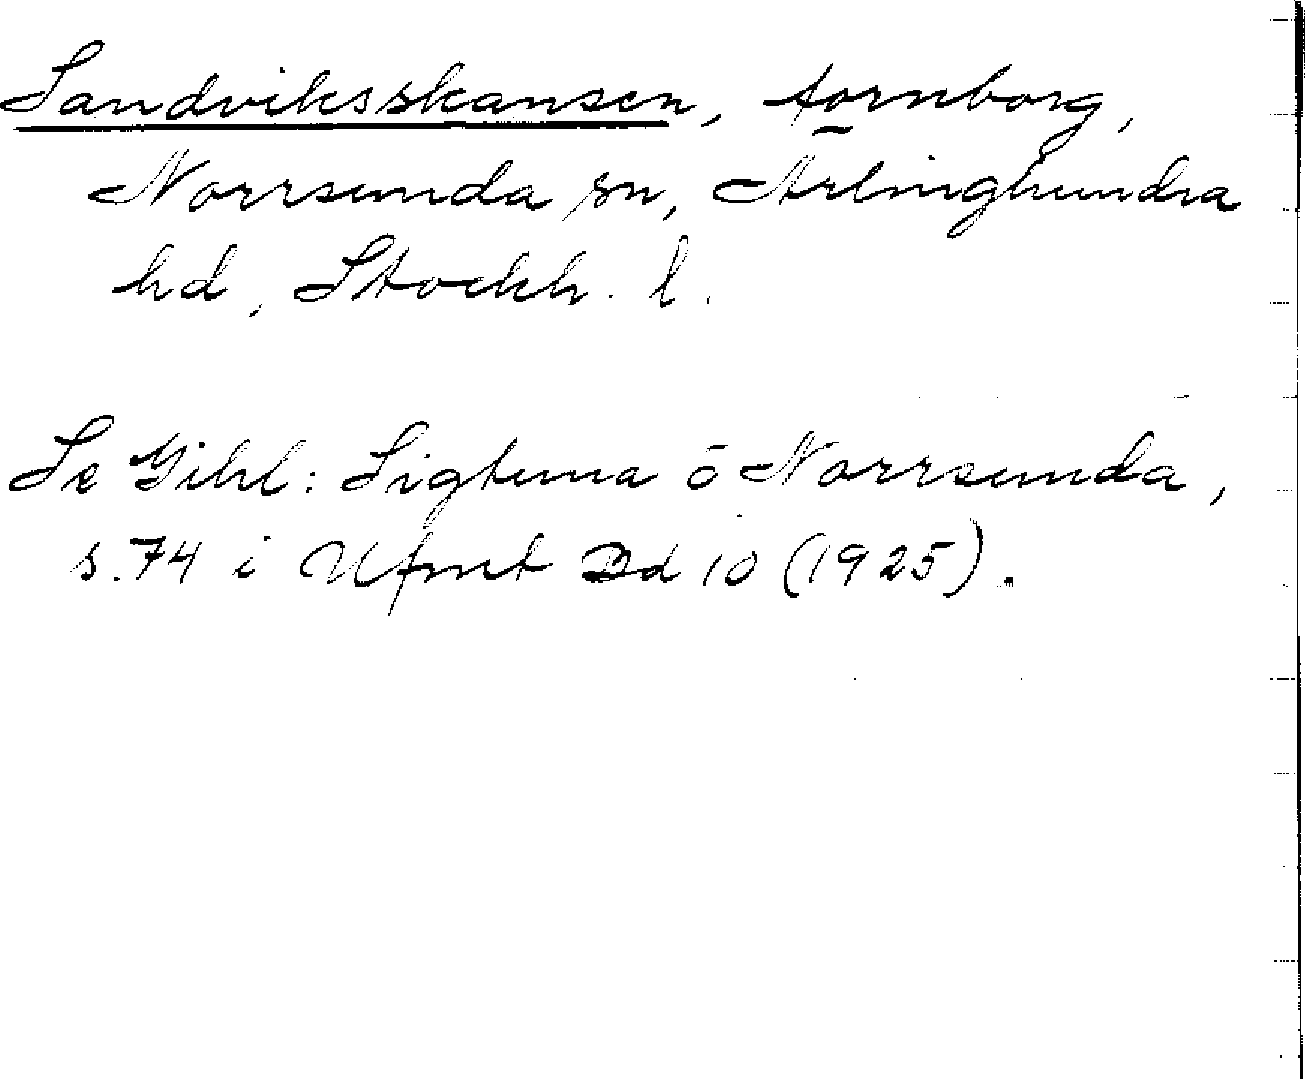 Sandviksskansen, fornborg,
Norrsunda sn, Ärlinghundra
hd, Stockh. l.
Se Gihl: Sigtuna o Norrsunda,
s. 74 i Ufmt Bd 10 (1925).